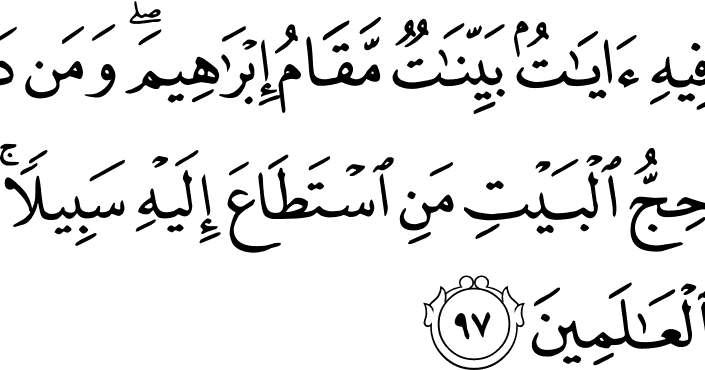 فِيهِ ءَايَٰتٌۢ بَيِّنَٰتٌ مَّقَامُ إِبْرَٰهِيمَ ۖ وَمَن
حِجُّ ٱلْبَيْتِ مَنِ ٱسْتَطَاعَ إِلَيْهِ سَبِيلًا ۚ
ٱلْعَٰلَمِينَ ٩٧